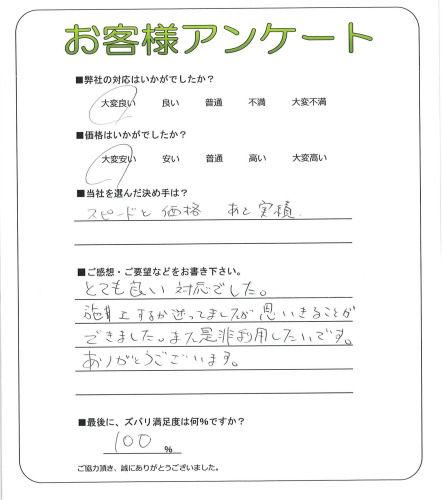 お客様アンケート
■弊社の対応はいかがでしたか？
大変良い 良い 普通 不満 大変不満
■価格はいかがでしたか？
大変安い 安い 普通 高い 大変高い
■当社を選んだ決め手は？
スピードと価格 あと実績.
■ご感想・ご要望などをお書き下さい。
とても良い対応でした。
施工するか迷ってましたが思いきることが
できました。また是非利用したいです。
ありがとうございます。
■最後に、ズバリ満足度は何%ですか？
100 %
ご協力頂き、誠にありがとうございました。